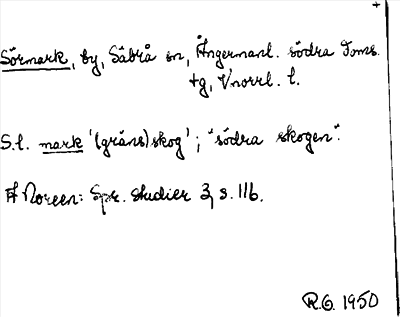 +
Sörmark, by, Säbrå sn, Ångermanl. södra doms.
tg, Vnorrl. l.
S.l. mark '(gräns)skog'; "södra skogen".
Noreen: Spr. studier 3, s. 116.
R.G. 1950